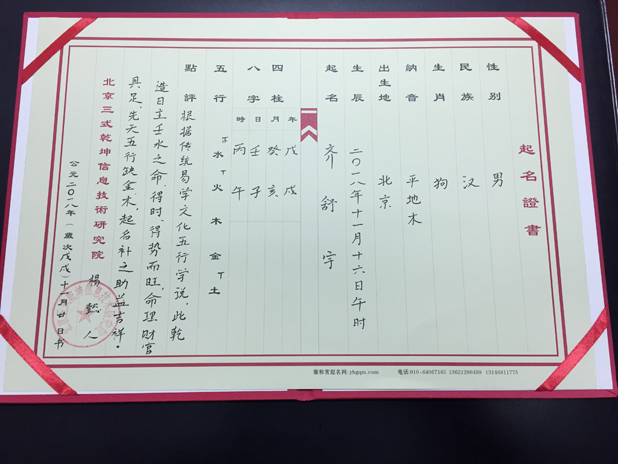 起名證書
性别 男
民族 汉
生肖 狗
納音 平地木
出生地 北京
生辰 二〇一八年十一月十六日午时
起名 齐舒宇
四柱 年 月 日 時
八字 戊戌 癸亥 壬子 丙午
五行 水 火 木 金 土
點評 根据传统易学文化五行学说，此乾
造日主壬水之命，得时、得势而旺，命理财官
具足，先天五行缺金、木，起名补之助益吉祥。
北京三式乾坤信息技術研究院
公元二〇一八年（歲次戊戌）十一月廿日书
雍和宫起名网：yhgqm.com 电话：010-64067185 13621280489 13146811775